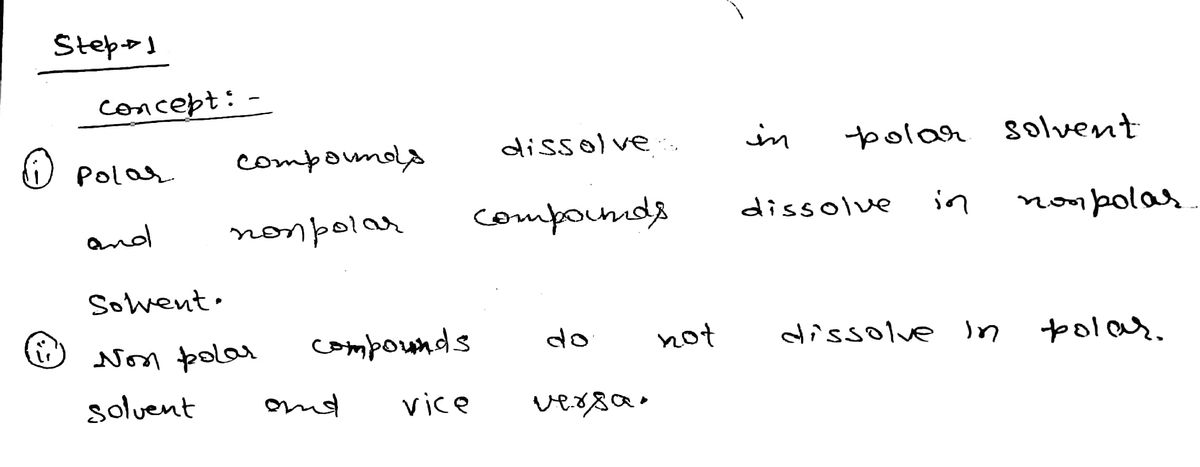 Step→1
Concept:-
(i) Polar compounds dissolve in polar solvent
and nonpolar compounds dissolve in nonpolar
Solvent.
(ii) Non polar compounds do not dissolve in polar.
solvent and vice versa.